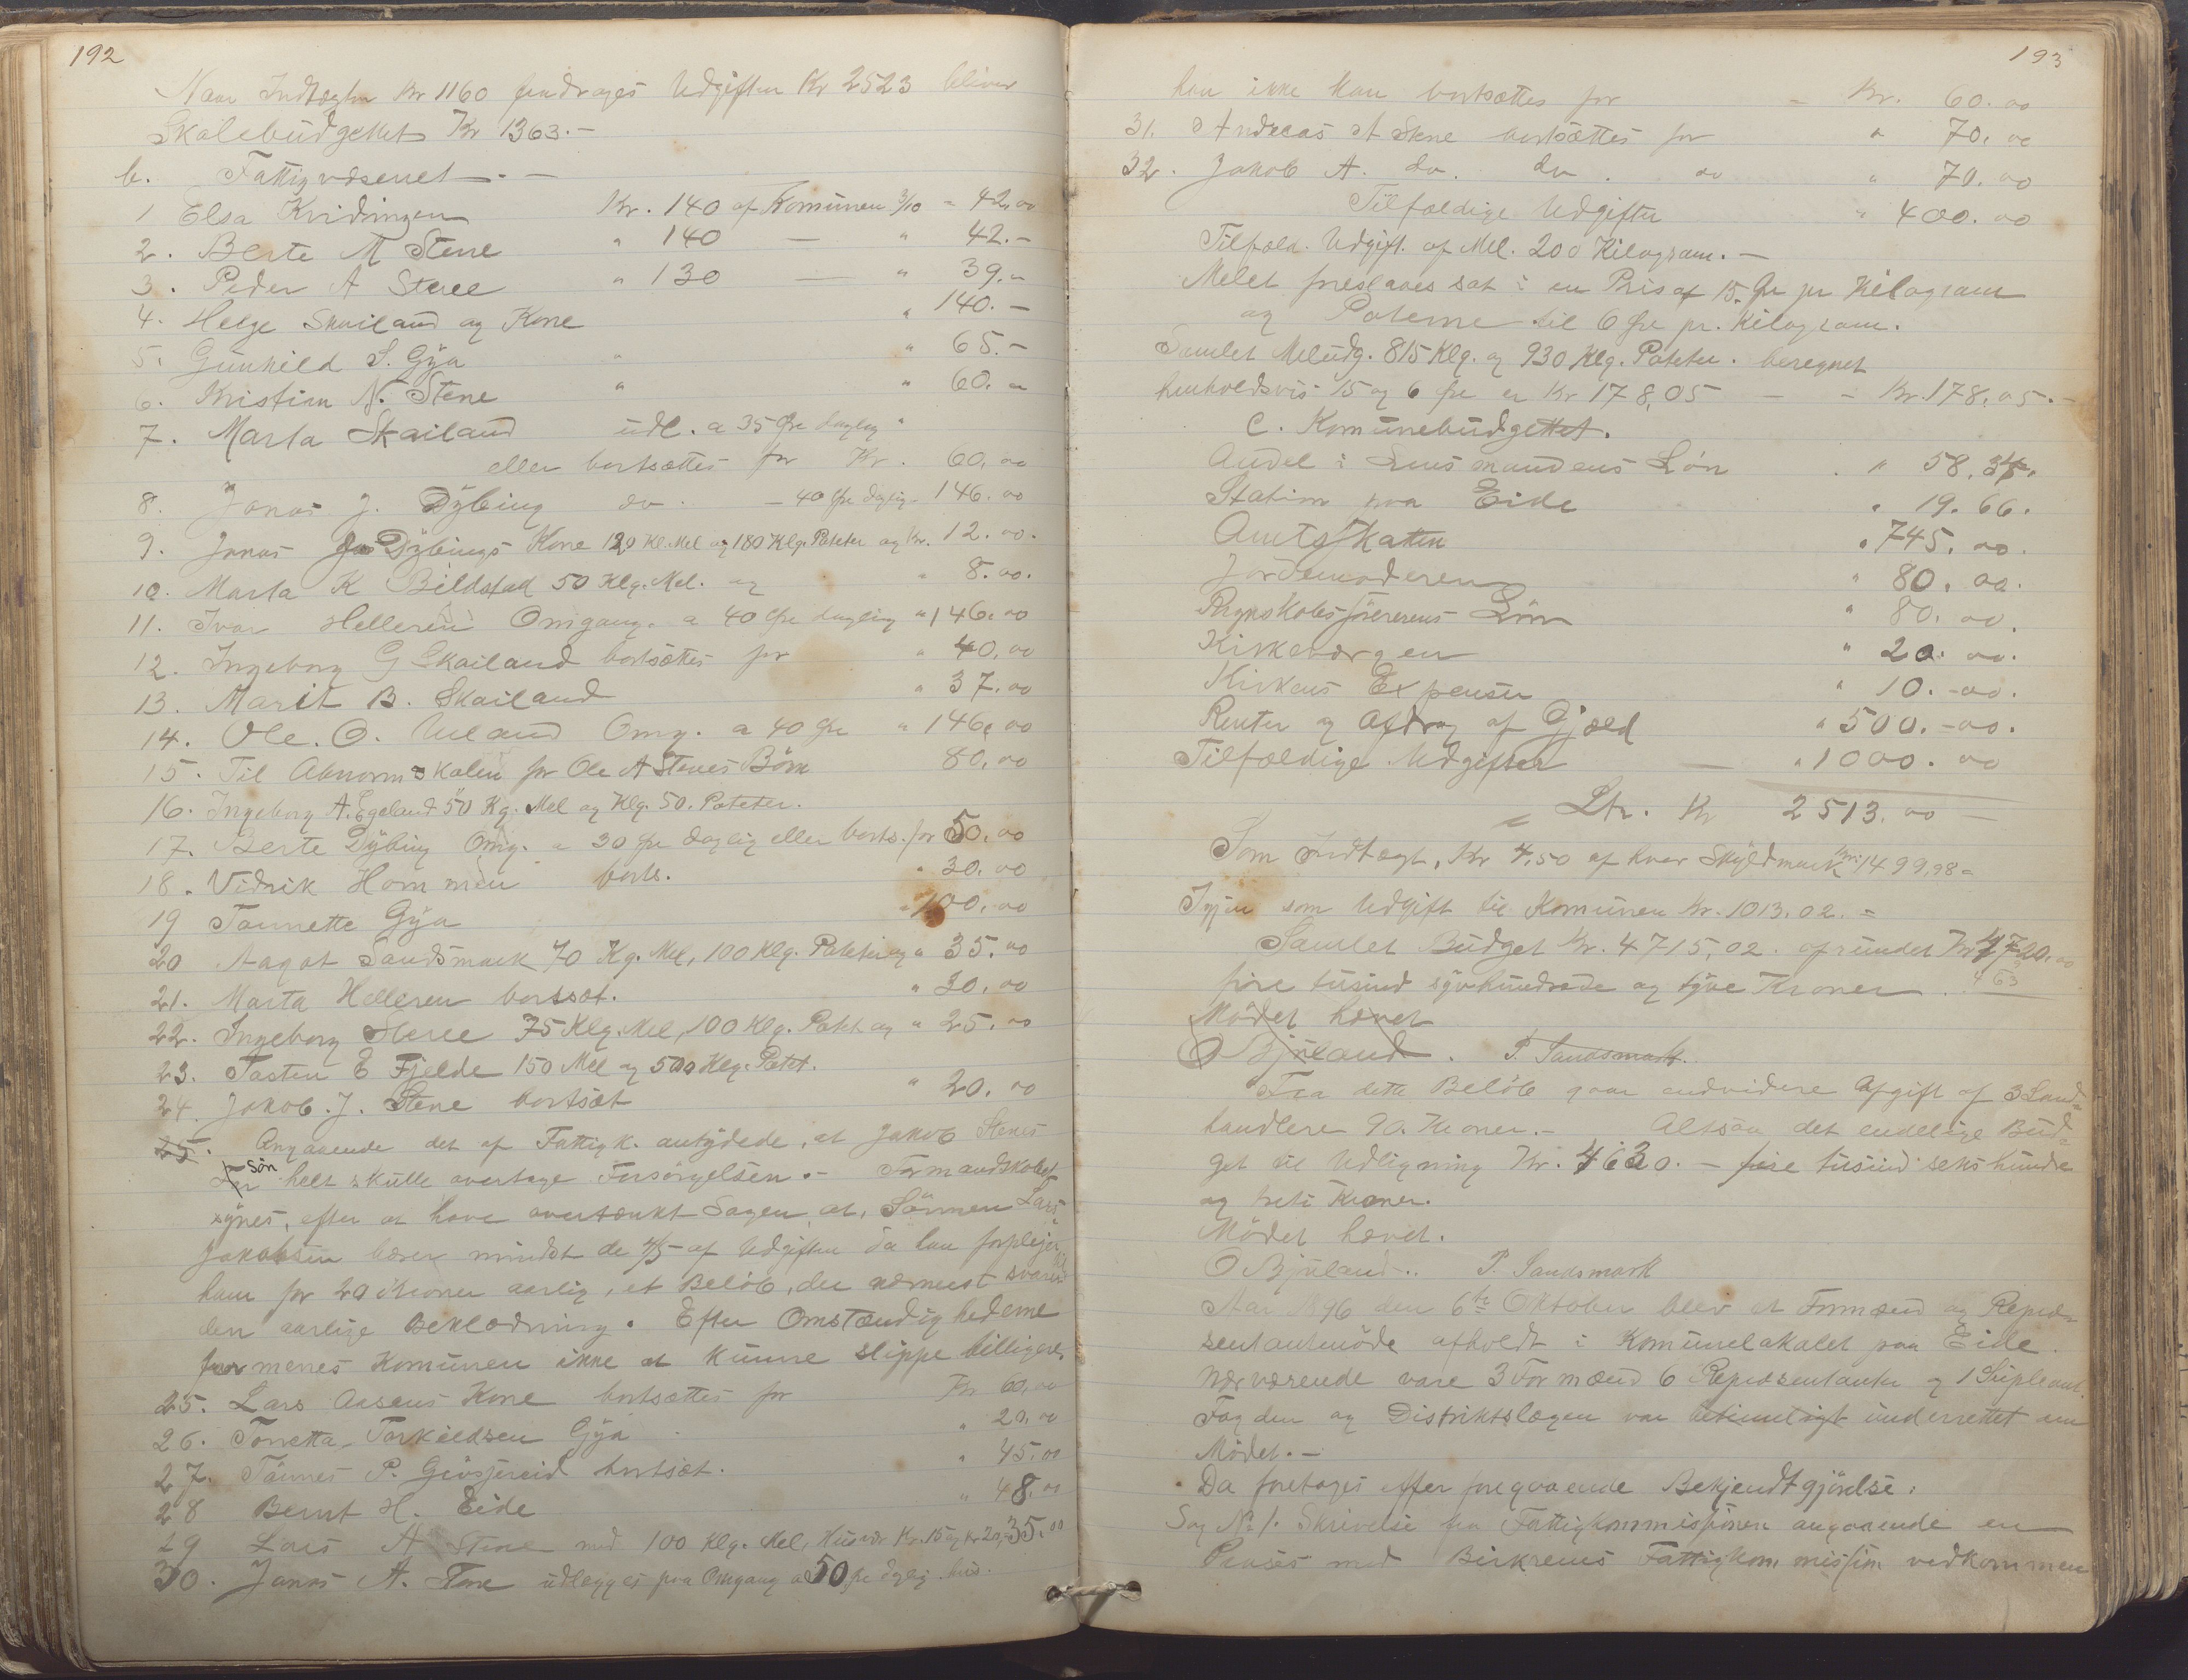 192
Naar Indtægten Kr 1160 fradrages Udgiften Kr 2523 bliver
Skolebudgettet Kr 1363.-
b. Fattigvæsenet.-
1 Elsa Kvidingen Kr. 140 af Komunen 3/10 = 42,00
2. Berte M Stene " 140 — " 42.-
3. Peder A Stene " 130 — " 39.-
4. Helge Skailand og Kone " 140.-
5. Gunhild S. Gya " " 65.-
6. Kristian N. Stene " " 60.-
7. Marta Skailand udl. a 35 Øre daglig "
eller bortsættes for Kr. 60,00
8. Jonas J. Dybing do. - 40 Øre daglig - 146.00
9. Jonas Dybings Kone 120 Kl. Mel og 180 Klg. Poteter og Kr. 12.00.
10. Marta K Bildstad 50 Klg. Mel. og " 8.00.
11. Ivar Helleren Omgang. a 40 Øre daglig " 146.00
12. Ingeborg G Skailand bortsættes for " 40,00
13. Marit B. Skailand " 37.00
14. Ole. O. Ueland Omg. a 40 Øre " 146,00
15. Til Abnormskolen for Ole A Stenes Börn 80,00
16. Ingeborg A. Egeland 50 Kg. Mel og Klg. 50. Poteter.
17. Berte Dybing Omg. a 30 Øre daglig eller borts. for 50.00
18. Vidrik Hommen borts. " 30.00
19 Tonnette Gya " 100.00
20 Aagot Sandsmark 70 Kg. Mel, 100 Klg. Poteter og " 35.00
21. Marta Helleren bortsat. " 30,00
22. Ingeborg Stene 75 Klg. Mel, 100 Klg. Potet og " 25.00
23. Tosten E Fjelde 150 Mel og 500 Klg. Potet.
24. Jakob. J. Stene bortsat " 20.00
25. Angaaende det af Fattigk. antydede, at Jakob Stenes
Sön helt skulle overtage Forsörgelsen.- Formandskabet
synes, efter at have overtænkt Sagen, at, Sönnen Lars
Jakobsen bærer mindst de 4/5 af Udgiften da han forpleier
ham for 20 Kroner aarlig, et Belöb, der nærmest svarer
den aarlige Beklædning. Efter Omstændighederne
formenes Komunen ikke at kunne slippe billigere.
25. Lars Aasens Kone bortsættes for Kr 60,00
26. Tonetta Torkildsen Gya " 20,00
27. Tönnes P. Gjösjereid bortsat. " 45.00
28 Bernt H. Eide " 48,00
29 Lars A Stene med 100 Klg. Mel, Husvær Kr. 15 og Kr 20, - 35.00
30. Jonas A. Stene udlægges paa Omgang a 50 Øre dglig. hvis.
193
han ikke kan bortsættes for - Kr. 60.00
31. Andreas A Stene bortsættes for " 70,00
32. Jakob A. do. do. do " 70.00
Tilfældige Udgifter " 400.00
Tilfæld. Udgift. af Mel. 200 Kilogram.-
Melet foreslaaes sat i en Pris af 15. Øre pr Kilogram
og Poterne til 6 Øre pr. Kilogram.
Samlet Meludg. 815 Klg. og 930 Klg. Poteter. beregnet
henholdsvis 15 og 6 Øre er Kr 178,05 - - Kr. 178,05.-
C. Komunebudgettet.
Andel i Lensmandens Lön " 58,34.
Station paa Eide " 19.66.
Amtsskatten " 745.00.
Jordemoderen " 80.00.
Regnskabsförerens Lön " 80.00.
Kirkeværgen " 20.00.
Kirkens Expenser " 10.-00.
Renter og Afdrag af Gjæld " 500.-00.
Tilfældige Udgifter — " 1000.00
Ltr. Kr 2513.00 —
Som Indtægt, Kr 4,50 af hver Skyldmark 1499,98 =
Igjen som Udgift til Komunen Kr. 1013.02. =
Samlet Budget Kr. 4715,02. afrundet Kr 4720.00
fire tusind syvhundrede og tyve Kroner.
Mödet hævet
O Bjuland. P. Sandsmark.
Fra dette Belöb gaar endvidere Afgift af 3 Land-
handlere 90. Kroner.- Altsaa det endelige Bud-
get til Udligning Kr. 4630.- fire tusind seks hundre
og treti Kroner.
Mödet hævet.
O Bjuland.. P. Sandsmark
Aar 1896 den 6te Oktober blev et Formænd og Repræ-
sentantmöde afholdt i Komunelokalet paa Eide.
Nærværende vare 3 Formænd 6 Repræsentanter og 1 Supleant.
Fogden og Distriktslægen var betimeligt underrettet om
Mödet.-
Da foretoges efter foregaaende Bekjendtgjörelse:
Sag No 1. Skrivelse fra Fattigkommissionen angaaende en
Proses med Birkrems Fattigkommission vedkommen